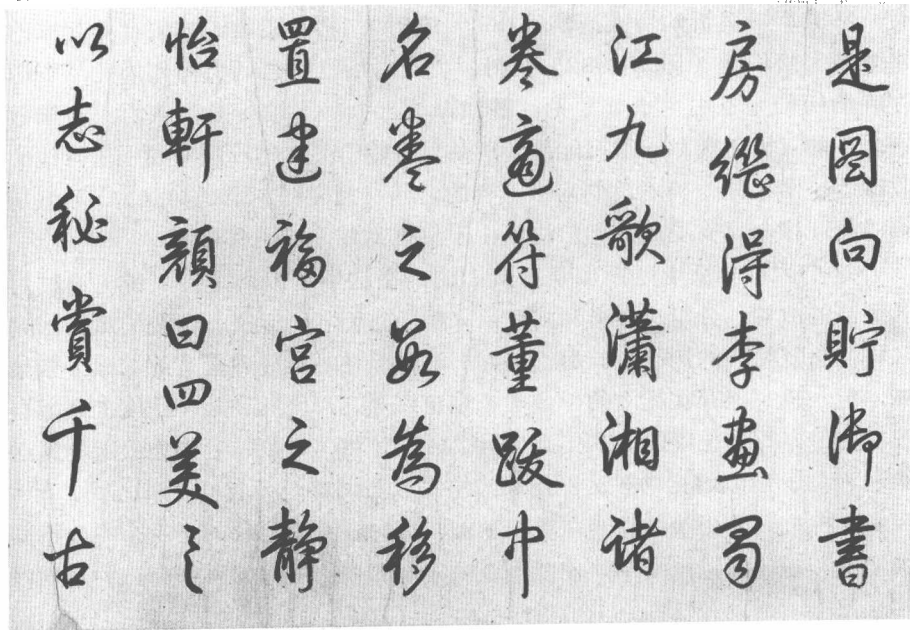 是圖向貯御書
房繼得李畫蜀
江九歌瀟湘諸
卷適符董跋中
名卷之數為移
置建福宮之靜
怡軒顏曰四美具
以志秘賞千古